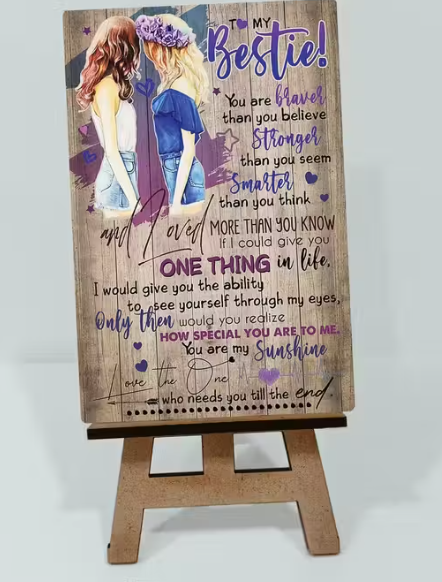 TO MY
Bestie!
You are braver
than you believe
Stronger
than you seem
Smarter
than you think
and Loved MORE THAN YOU KNOW
If I could give you
ONE THING in life,
I would give you the ability
to see yourself through my eyes,
Only then would you realize
HOW SPECIAL YOU ARE TO ME.
You are my Sunshine
Love the One
who needs you till the end.